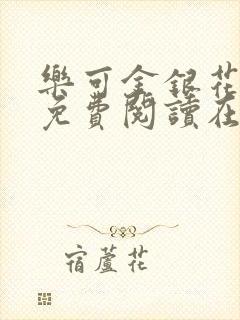 樂可金銀花
免費閱讀在
宿蘆花